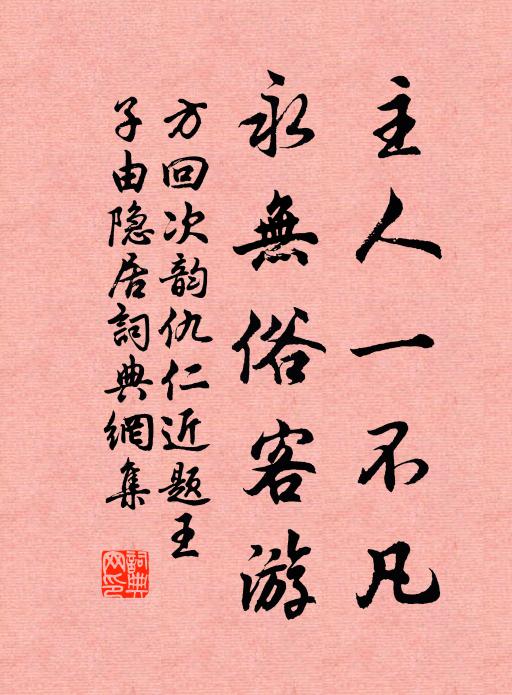 主人一不凡
永無俗客游
方回次韵仇仁近题王
子由隐居詞典網集
詞典
网印